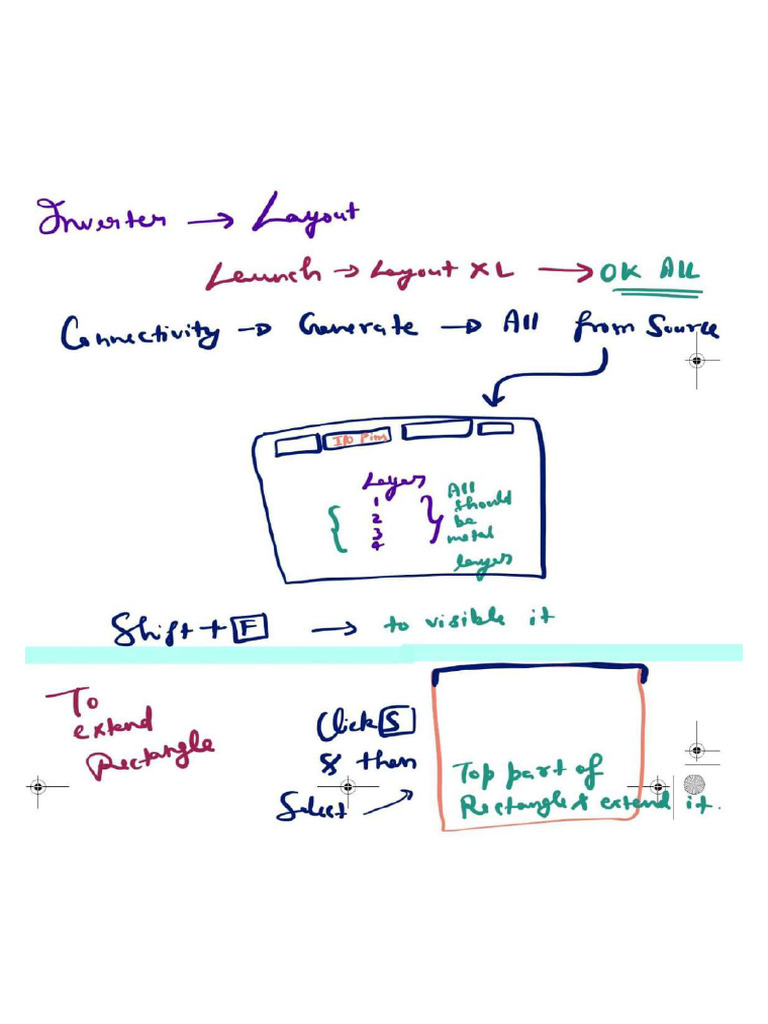 Inverter → Layout
Launch → Layout XL → OK ALL
Connectivity → Generate → All from Source
I/O Pins
Layers
1
2
3
4
All
should
be
metal
layers
Shift + F → to visible it
To
extend
Rectangle
Click S
& then
Select →
Top part of
Rectangle & extend it.